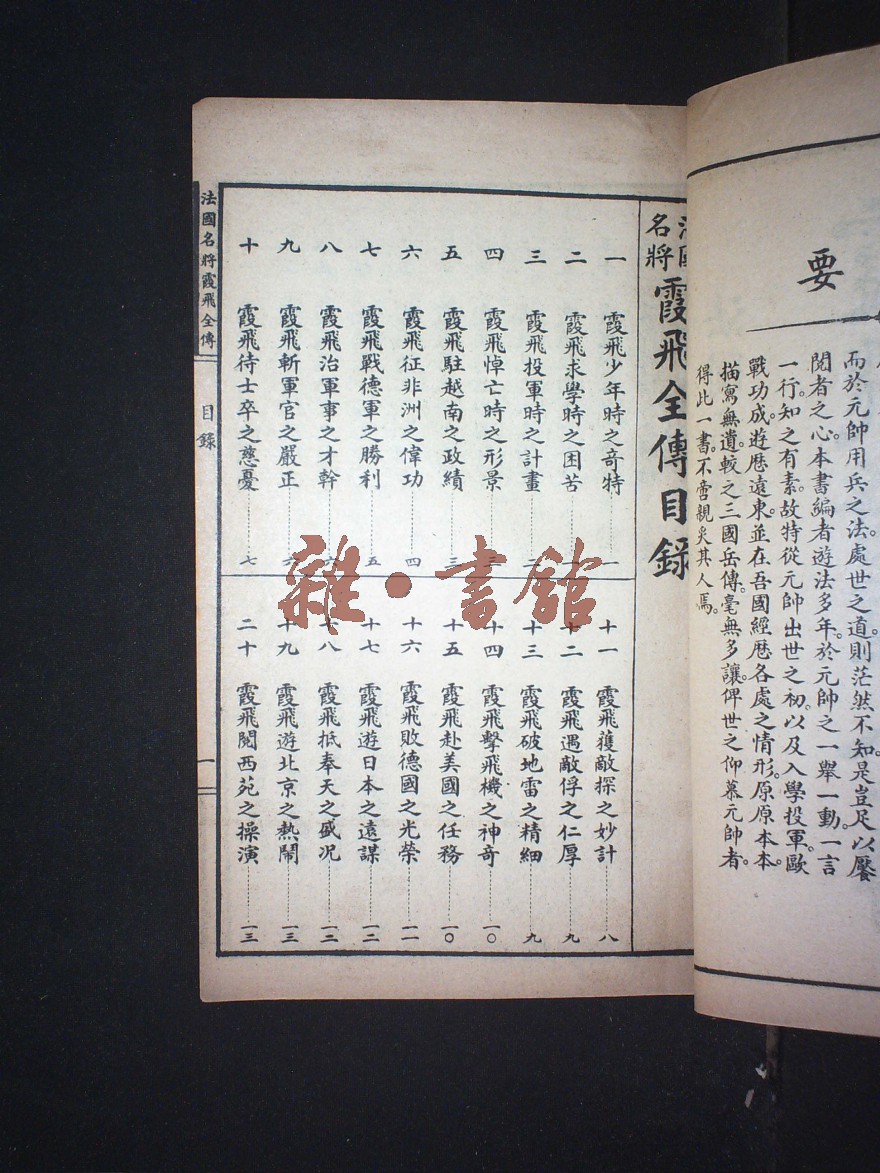 要
而於元帥用兵之法。處世之道。則茫然不知。是豈足以饜
閱者之心。本書編者遊法多年。於元帥之一舉一動。一言
一行。知之有素。故特從元帥出世之初。以及入學投軍。歐
戰功成。遊歷遠東。並在吾國經歷各處之情形。原原本本。
描寫無遺。較之三國岳傳。毫無多讓。俾世之仰慕元帥者。
得此一書。不啻親炙其人焉。
法國名將霞飛全傳目錄
一 霞飛少年時之奇特 一
二 霞飛求學時之困苦
三 霞飛投軍時之計畫 二
四 霞飛悼亡時之形景
五 霞飛駐越南之政績 三
六 霞飛征非洲之偉功 四
七 霞飛戰德軍之勝利 五
八 霞飛治軍事之才幹 六
九 霞飛斬軍官之嚴正 六
十 霞飛待士卒之慈憂 七
十一 霞飛獲敵探之妙計 八
十二 霞飛遇敵俘之仁厚 九
十三 霞飛破地雷之精細 九
十四 霞飛擊飛機之神奇 一〇
十五 霞飛赴美國之任務 一〇
十六 霞飛敗德國之光榮 一一
十七 霞飛遊日本之遠謀 一二
十八 霞飛抵奉天之盛况 一二
十九 霞飛遊北京之熱鬧 一三
二十 霞飛閱西苑之操演 一三
法國名將霞飛全傳 目錄 一
雜·書館